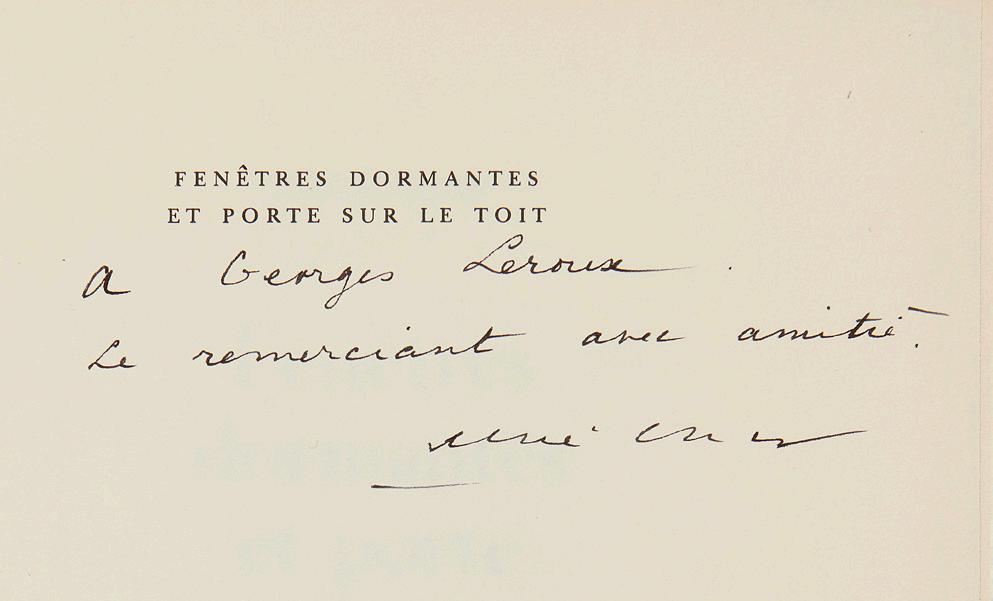 FENÊTRES DORMANTES
ET PORTE SUR LE TOIT
A Georges Leroux
Le remerciant avec amitié.
René Char